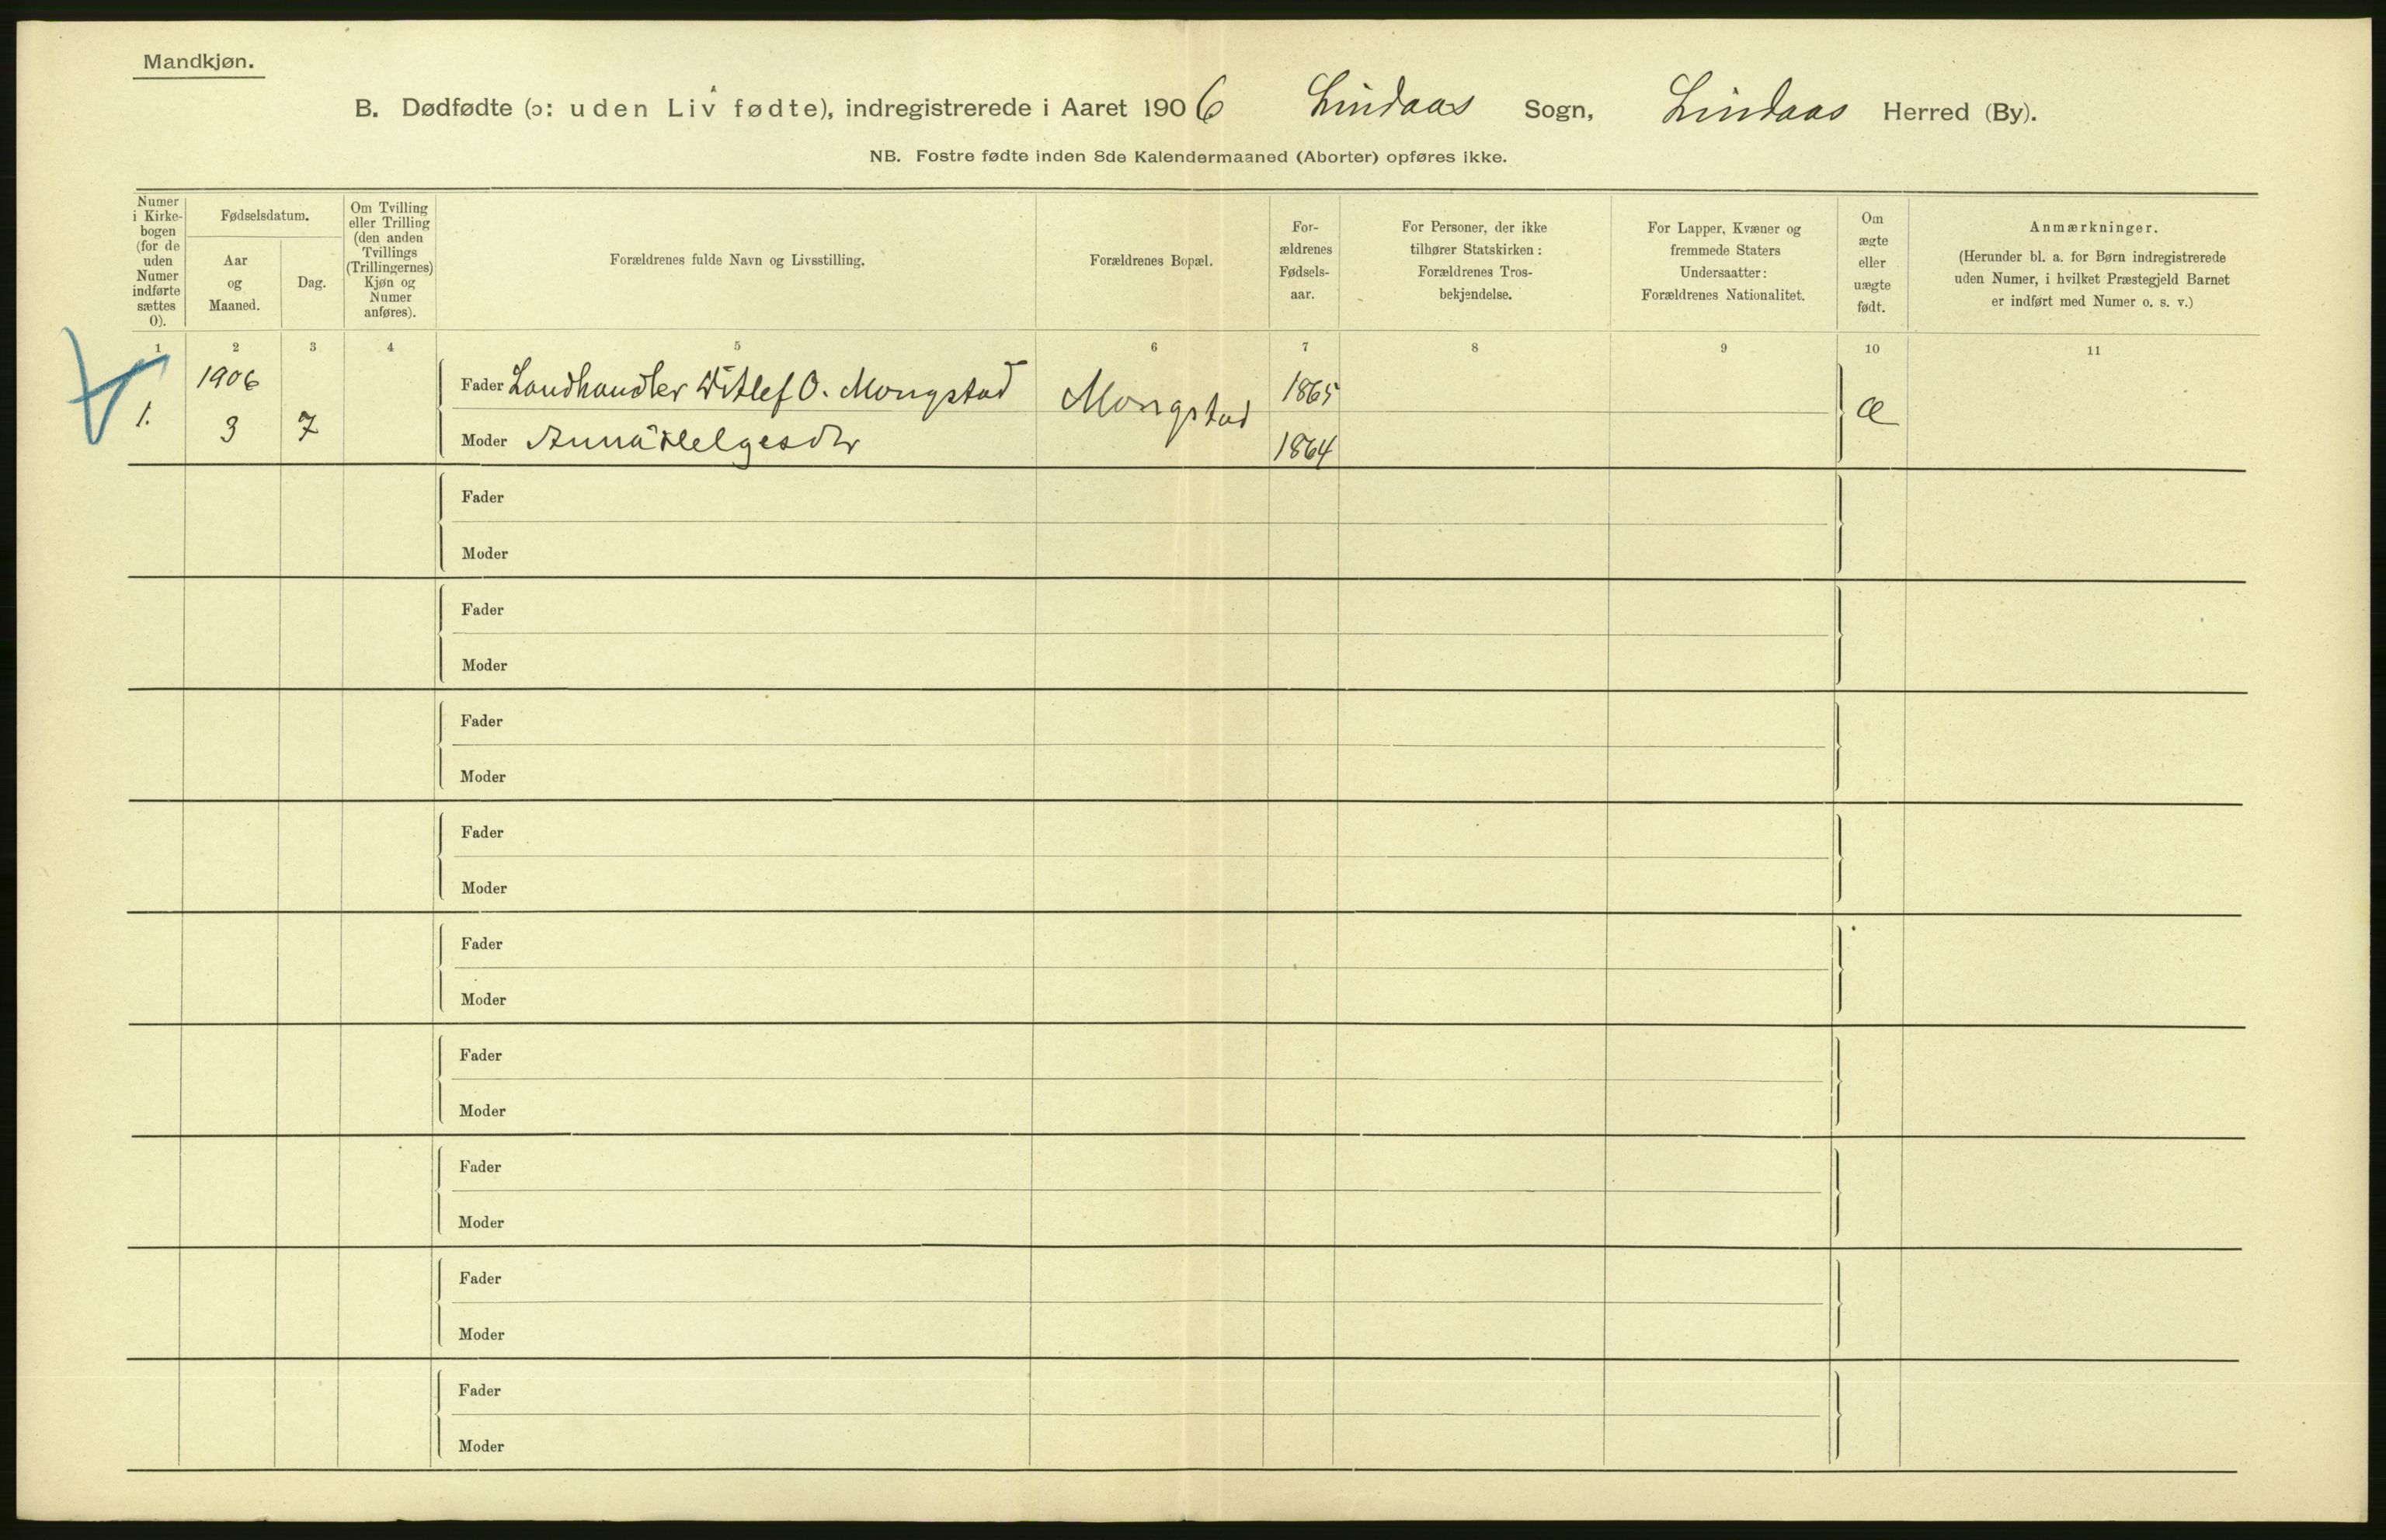 Mandkjøn.
B. Dødfødte (ɔ: uden Liv fødte), indregistrerede i Aaret 1906 Lindaas Sogn, Lindaas Herred (By).
NB. Fostre fødte inden 8de Kalendermaaned (Aborter) opføres ikke.
Numer
i Kirke-
bogen
(for de
uden
Numer
indførte
sættes
0).
Fødselsdatum.
Aar
og
Maaned.
Dag.
Om Tvilling
eller Trilling
(den anden
Tvillings
(Trillingernes)
Kjøn og
Numer
anføres).
Forældrenes fulde Navn og Livsstilling.
Forældrenes Bopæl.
For-
ældrenes
Fødsels-
aar.
For Personer, der ikke
tilhører Statskirken:
Forældrenes Tros-
bekjendelse.
For Lapper, Kvæner og
fremmede Staters
Undersaatter:
Forældrenes Nationalitet.
Om
ægte
eller
uægte
født.
Anmærkninger.
(Herunder bl. a. for Børn indregistrerede
uden Numer, i hvilket Præstegjeld Barnet
er indført med Numer o. s. v.)
1 2 3 4 5 6 7 8 9 10 11
1906
Fader Landhandler Ditlef O. Mongstad
Mongstad
1865
1.
3
7
Æ
Moder Anna Helgesdtr
1864
Fader
Moder
Fader
Moder
Fader
Moder
Fader
Moder
Fader
Moder
Fader
Moder
Fader
Moder
Fader
Moder
Fader
Moder